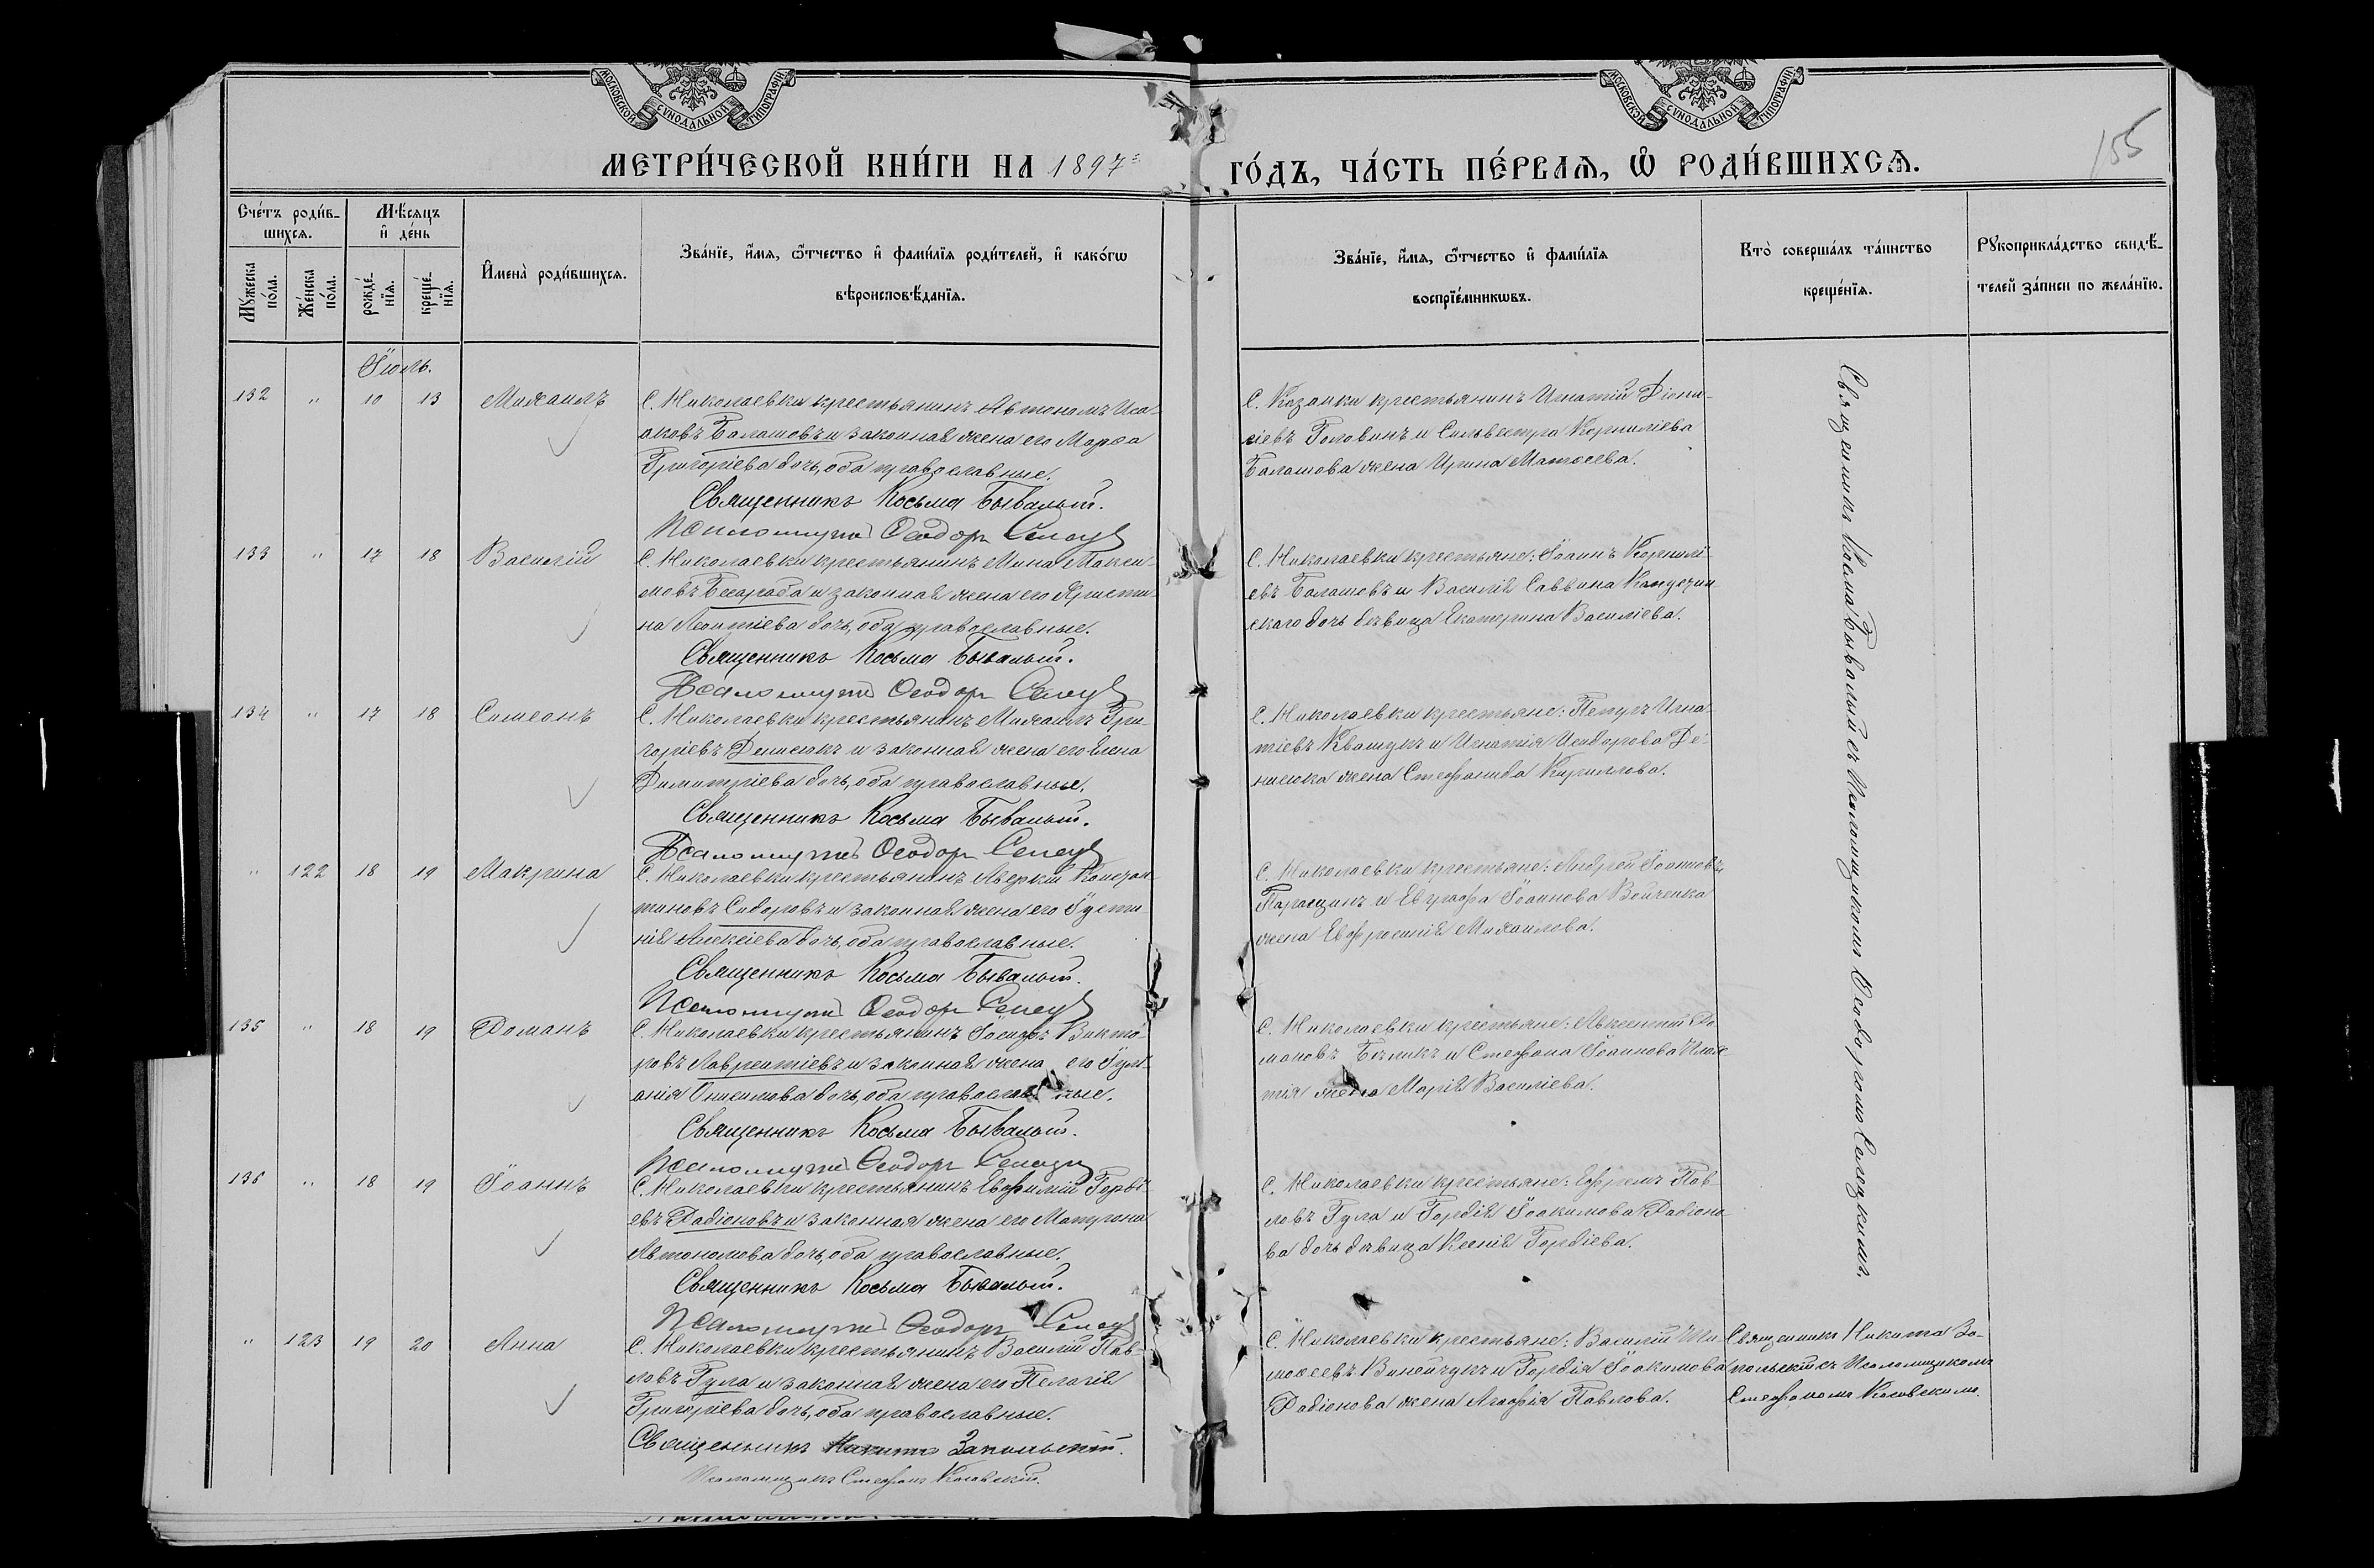 МОСКОВСКОЙ СѴНОДАЛЬНОЙ ТИПОГРАФІИ
МОСКОВСКОЙ СѴНОДАЛЬНОЙ ТИПОГРАФІИ
155
МЕТРИ́ЧЕСКОЙ КНИ́ГИ НА 1897 ГО́ДЪ, ЧА́СТЬ ПЕ́РВАѦ, Ѡ҆ РОДИ́ВШИХСѦ.
Сче́тъ роди́в-
шихсѧ.
Мꙋ́жеска по́ла.
Же́нска по́ла.
Мѣ́сѧцъ
и҆ де́нь
рожде́-
нїѧ.
креще́-
нїѧ.
И҆мена̀ роди́вшихсѧ.
Зва́нїе, и҆́мѧ, ѻ҆́тчество и҆ фами́лїѧ роди́телей, и҆ како́гѡ
вѣроисповѣ́данїѧ.
Зва́нїе, и҆́мѧ, ѻ҆́тчество и҆ фами́лїѧ
воспрїе́мникѡвъ.
Кто̀ соверша́лъ та́инство
креще́нїѧ.
Рꙋкоприкла́дство свидѣ́-
телей за́писи по жела́нїю.
Іюль.
132 " 10 13 Михаилъ
С. Николаевки крестьянинъ Автономъ Иса-
аковъ Балашовъ и законная жена его Марѳа
Григоріева дочь, оба православные.
Священникъ Косьма Бывалый.
Псаломщикъ Ѳеодоръ
С. Казанки крестьянинъ Игнатій Діони-
сіевъ Головинъ и Сильвестра Корниліева
Балашова жена Ирина Матѳеева.
Священникъ Косма Бывалый съ Псаломщикомъ Ѳеодоромъ Селецкимъ.
133 " 17 18 Василій
С. Николаевки крестьянинъ Мина Макси-
мовъ Бесараба и законная жена его Христи-
на Леонтіева дочь, оба православные.
Священникъ Косьма Бывалый.
Псаломщикъ Ѳеодоръ
С. Николаевки крестьяне: Іоаннъ Корнилі-
евъ Балашовъ и Василія Саввина
скаго дочь дѣвица Екатерина Василіева.
134 " 17 18 Симеонъ
С. Николаевки крестьянинъ Михаилъ Гри-
горіевъ Денисюкъ и законная жена его Елена
Димитріева дочь, оба православные.
Священникъ Косьма Бывалый.
Псаломщикъ Ѳеодоръ
С. Николаевки крестьяне: Петръ Игна-
тіевъ Квашукъ и Игнатія Исидорова Де-
нисюка жена Стефанида Кириллова.
" 122 18 19 Макрина
С. Николаевки крестьянинъ Аверкій Констан-
тиновъ Сидоровъ и законная жена его Іусти-
нія Алексіева дочь, оба православные.
Священникъ Косьма Бывалый.
Псаломщикъ Ѳеодоръ
С. Николаевки крестьяне: Андрей Іоанновъ
и Евграфа Іоаннова Войченка
жена Евфросинія Михаилова.
135 " 18 19 Романъ
С. Николаевки крестьянинъ Іосифъ Викто-
ровъ Лаврентіевъ и законная жена его Іулі-
анія Онисимова дочь, оба православные.
Священникъ Косьма Бывалый.
Псаломщикъ Ѳеодоръ
С. Николаевки крестьяне: Авксентій Ро-
мановъ и Стефана Іоаннова
жена Марія Василіева.
136 " 18 19 Іоаннъ
С. Николаевки крестьянинъ Евфимій Горді-
евъ Радіоновъ и законная жена его Матрона
Автономова дочь, оба православные.
Священникъ Косьма Бывалый.
Псаломщикъ Ѳеодоръ
С. Николаевки крестьяне: Ефремъ Пав-
ловъ Гула и Гордія Іоакимова Радіоно-
ва дочь дѣвица Ксенія Гордіева.
" 123 19 20 Анна
С. Николаевки крестьянинъ Василій Пав-
ловъ Гула и законная жена его Пелагія
Григоріева дочь, оба православные.
Священникъ Никита Запольскій.
Псаломщикъ Стефанъ Косовскій.
С. Николаевки крестьяне: Василій Ти-
моѳеевъ Винейчукъ и Гордія Іоакимова
Радіонова жена Агафія Павлова.
Священникъ Никита За-
польскій съ Псаломщикомъ
Стефаномъ Косовскимъ.